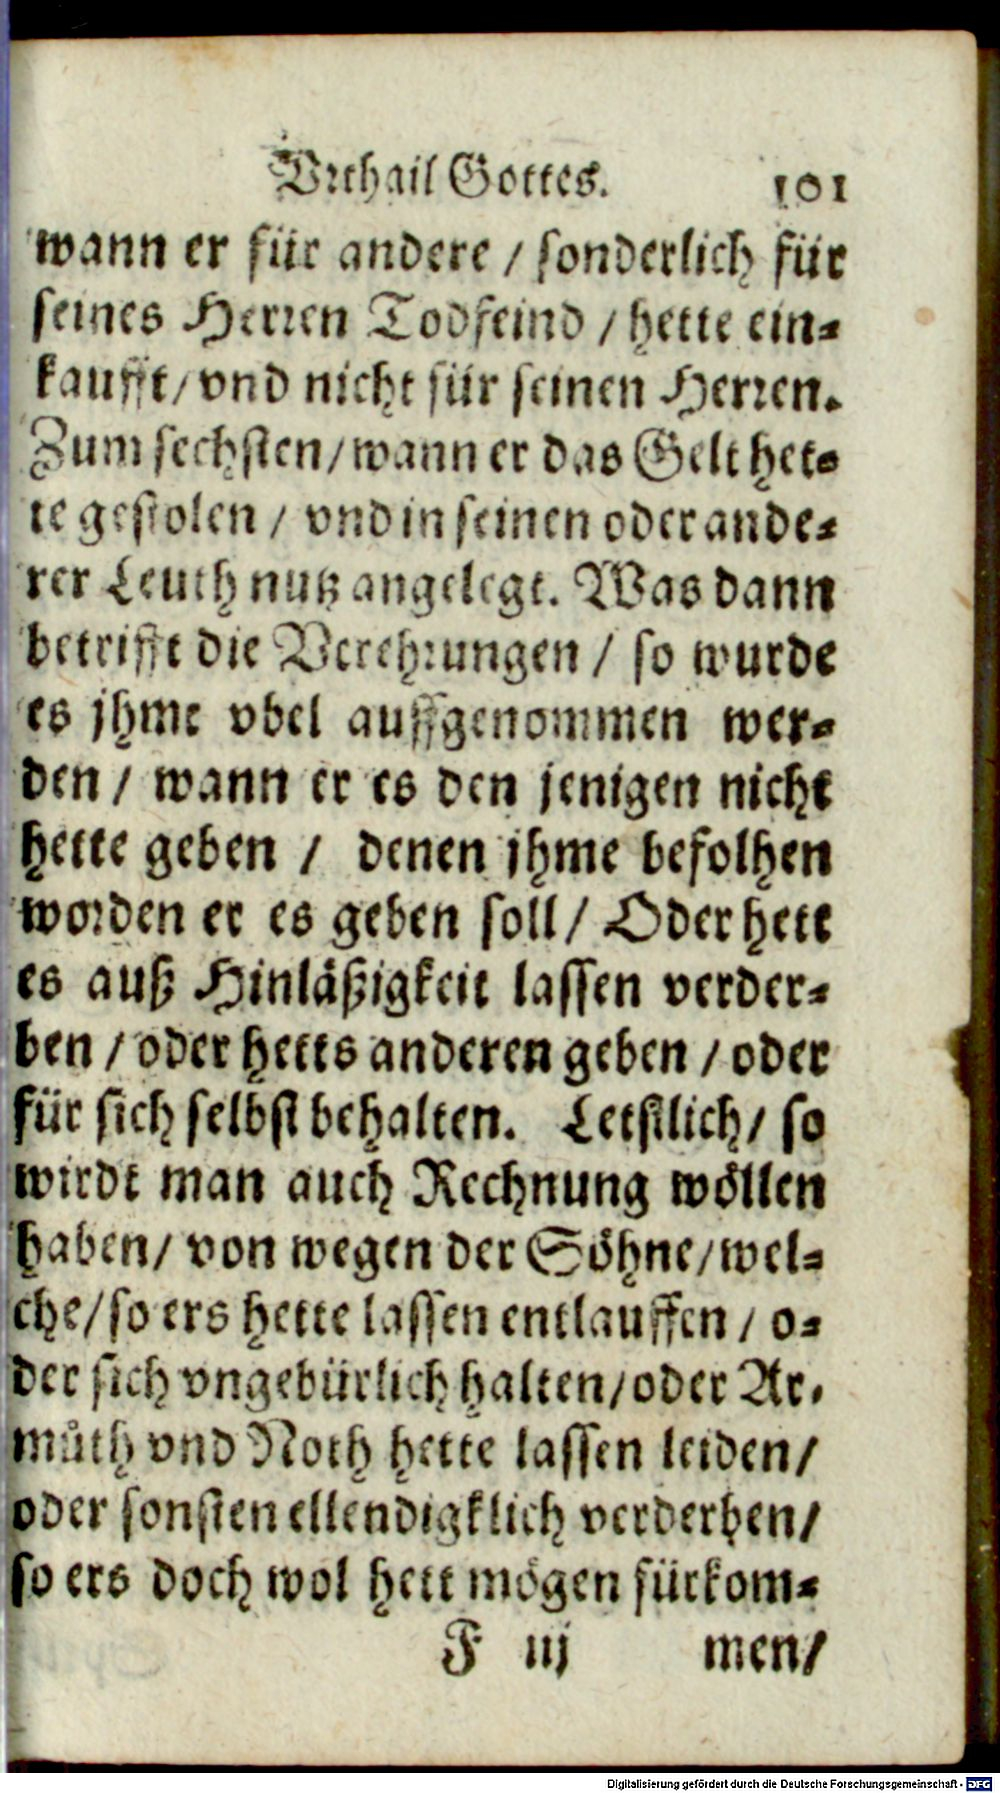 Vrthail Gottes. 101
wann er für andere / sonderlich für
seines Herren Todfeind / hette ein-
kaufft / vnd nicht für seinen Herren.
Zum sechsten / wann er das Gelt het-
te gestolen / vnd in seinen oder ande-
rer Leuth nutz angelegt. Was dann
betrifft die Verehrungen / so wurde
es jhme vbel auffgenommen wer-
den / wann er es den jenigen nicht
hette geben / denen jhme befolhen
worden er es geben soll / Oder hett
es auß Hinläßigkeit lassen verder-
ben / oder hetts anderen geben / oder
für sich selbst behalten. Letstlich / so
wirdt man auch Rechnung wöllen
haben / von wegen der Söhne / wel-
che / so ers hette lassen entlauffen / o-
der sich vngebürlich halten / oder Ar-
můth vnd Noth hette lassen leiden /
oder sonsten ellendigklich verderben /
so ers doch wol hett mögen fürkom-
F iij men /
Digitalisierung gefördert durch die Deutsche Forschungsgemeinschaft - DFG